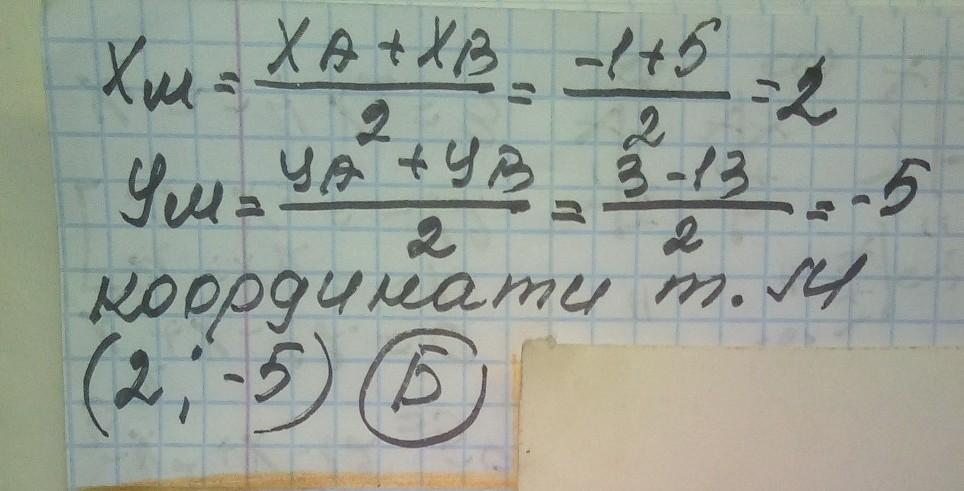 Xм = (XA + XB)/2 = (-1+5)/2 = 2
Ум = (УA + УB)/2 = (3-13)/2 = -5
координати т. М
(2; -5) Б